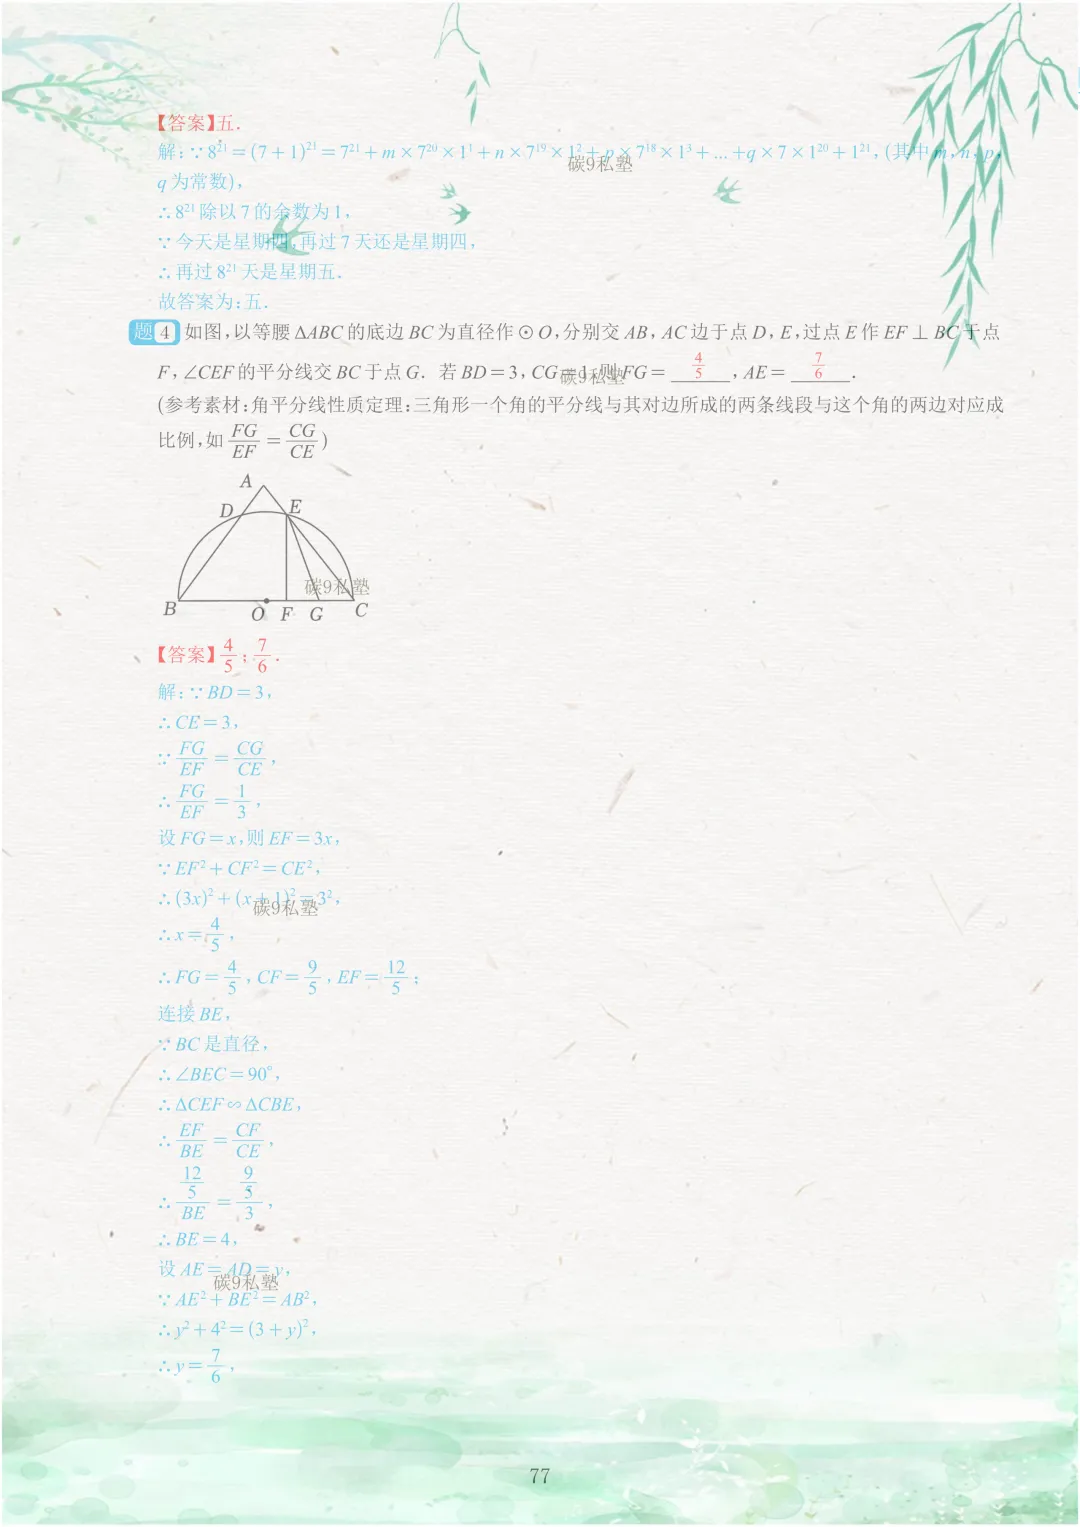 【答案】五.
解:∵8²¹=(7+1)²¹=7²¹+m×7²⁰×1¹+n×7¹⁹×1²+p×7¹⁸×1³+…+q×7×1²⁰+1²¹,(其中m,n,p,
碳9私塾
q为常数),
∴8²¹除以7的余数为1,
∵今天是星期四,再过7天还是星期四,
∴再过8²¹天是星期五.
故答案为:五.
题4 如图,以等腰ΔABC的底边BC为直径作⊙O,分别交AB,AC边于点D,E,过点E作EF⊥BC于点
F,∠CEF的平分线交BC于点G. 若BD=3,CG=1,则FG= 4/5 ,AE= 7/6 .
碳9私塾
(参考素材:角平分线性质定理:三角形一个角的平分线与其对边所成的两条线段与这个角的两边对应成
比例,如 FG/EF = CG/CE )
A
D E
碳9私塾
B O F G C
【答案】4/5;7/6.
解:∵BD=3,
∴CE=3,
∵FG/EF=CG/CE,
∴FG/EF=1/3,
设FG=x,则EF=3x,
∵EF²+CF²=CE²,
∴(3x)²+(x+1)²=3²,
碳9私塾
∴x=4/5,
∴FG=4/5,CF=9/5,EF=12/5;
连接BE,
∵BC是直径,
∴∠BEC=90°,
∴ΔCEF∽ΔCBE,
∴EF/BE=CF/CE,
∴(12/5)/BE=(9/5)/3,
∴BE=4,
设AE=AD=y,
碳9私塾
∵AE²+BE²=AB²,
∴y²+4²=(3+y)²,
∴y=7/6,
77